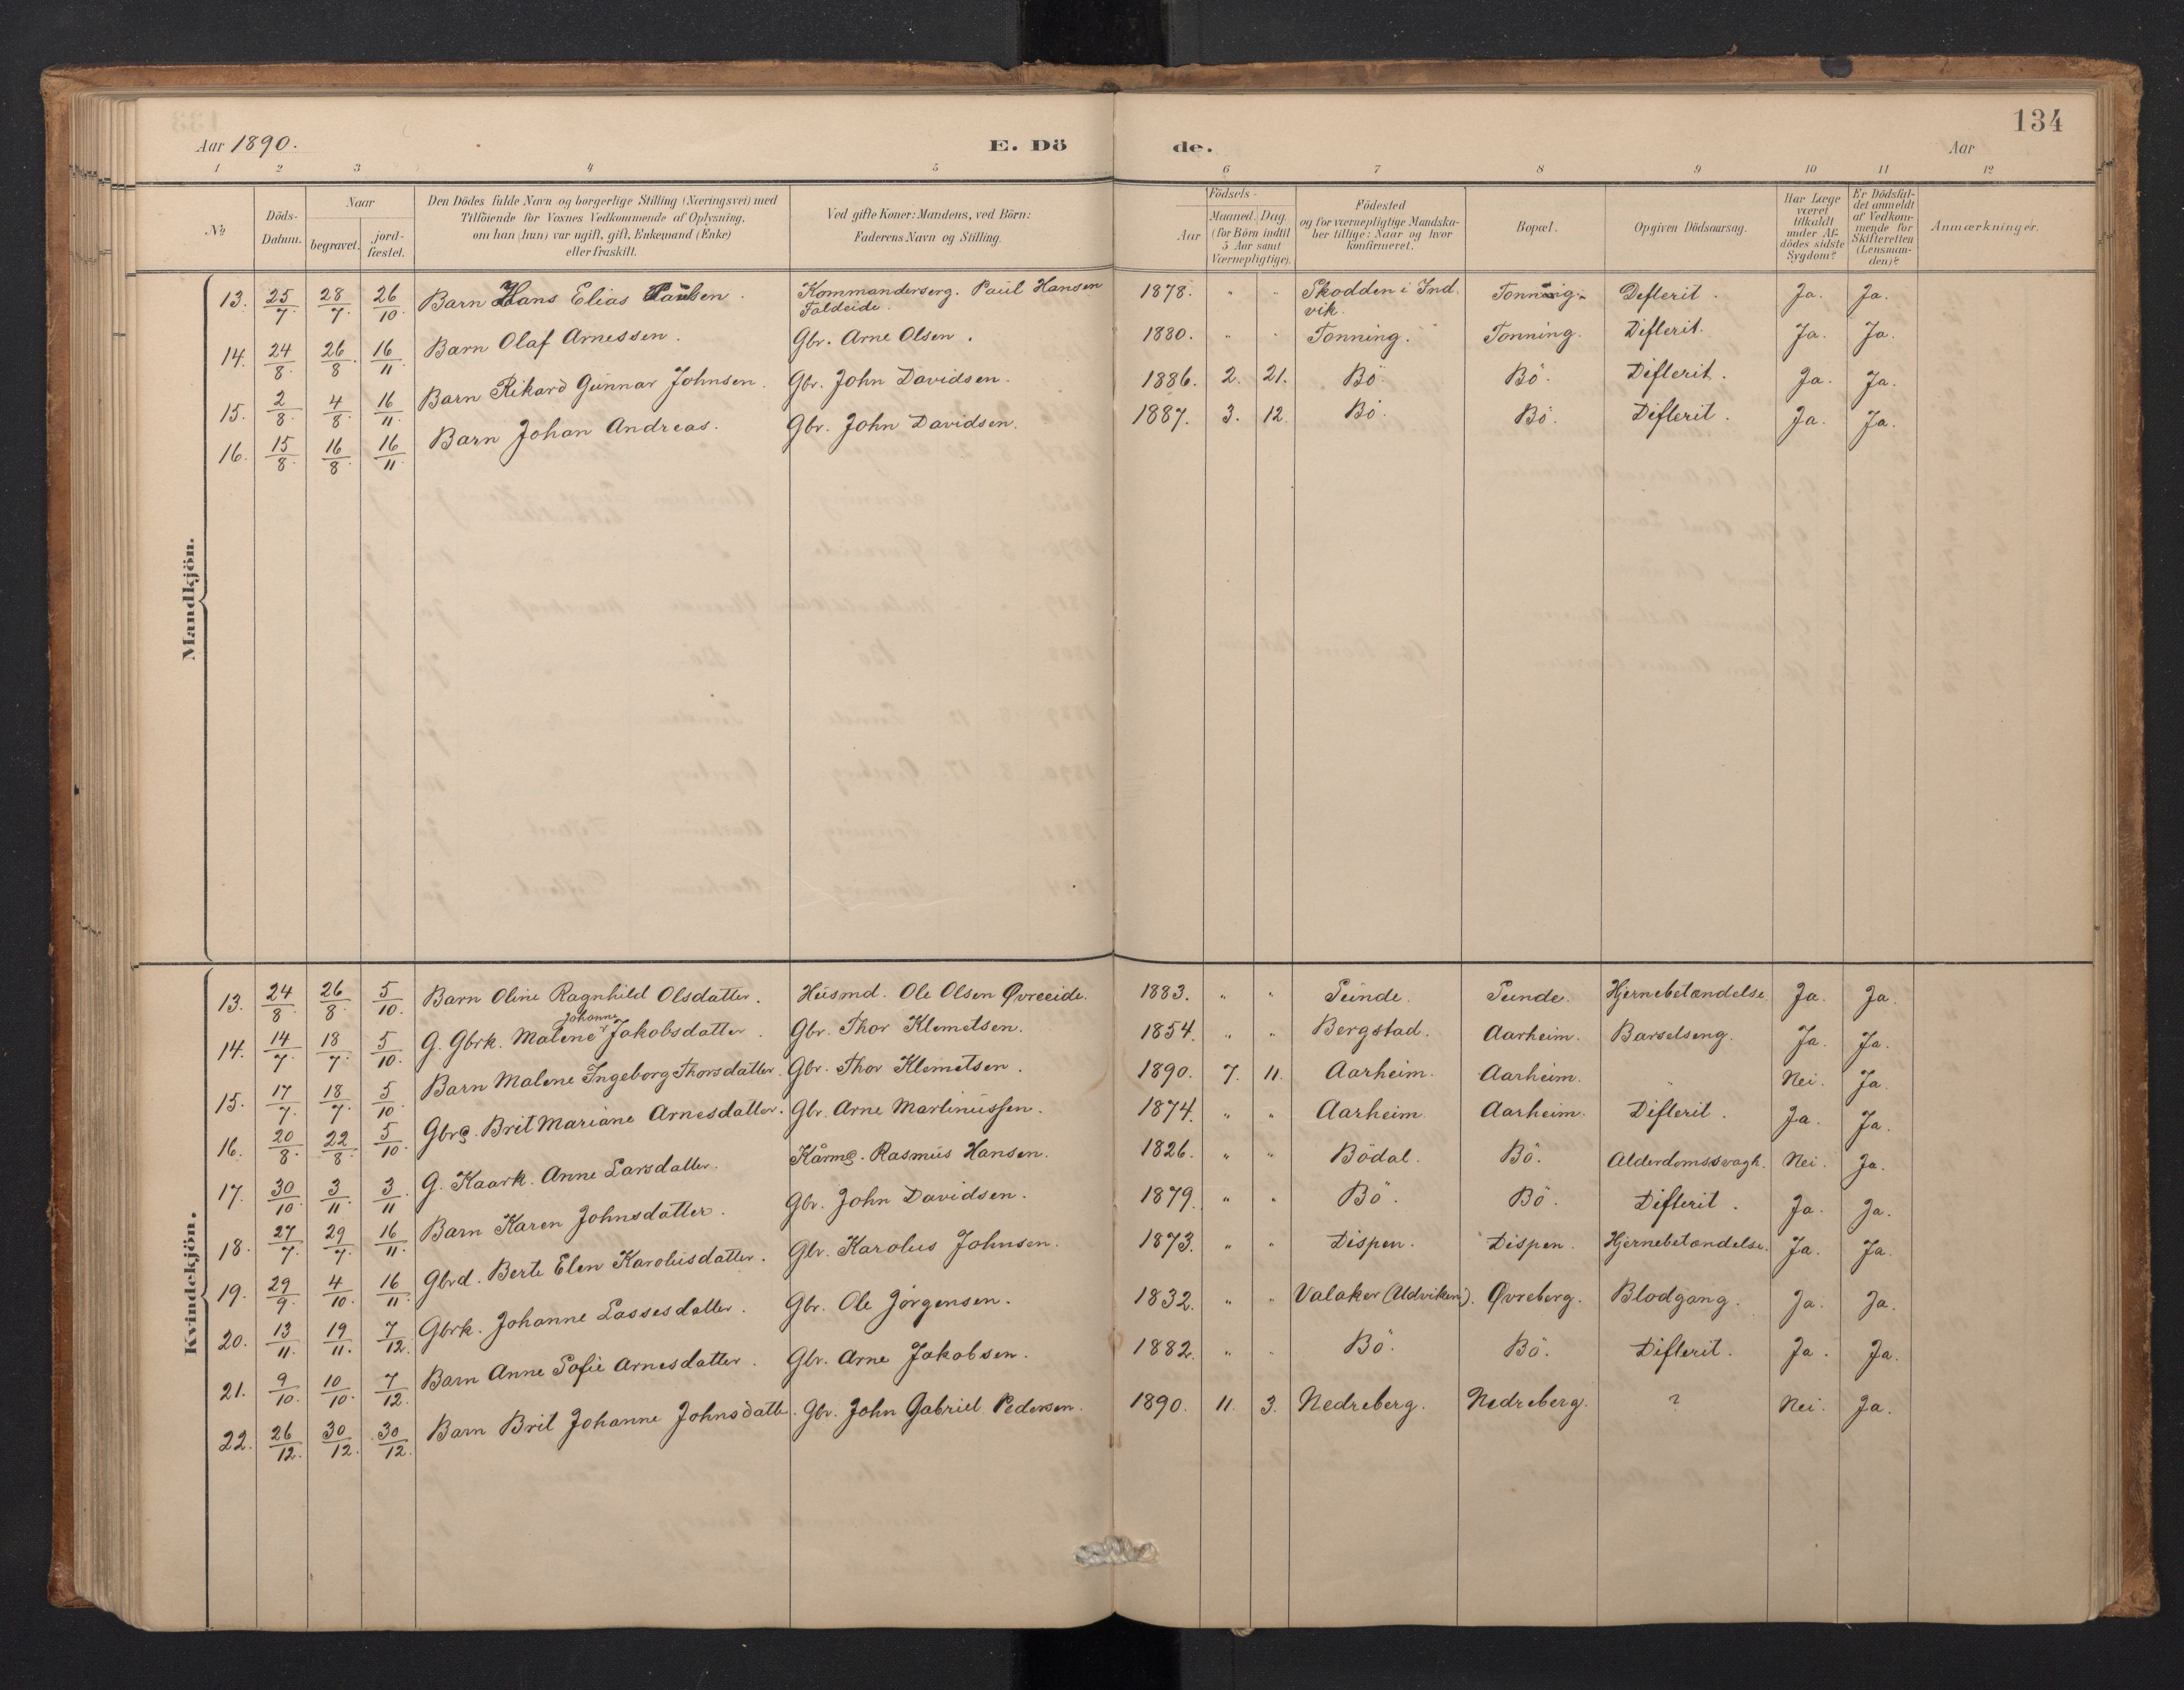 134
Aar 1890. E. Dö de. Aar
1 2 3 4 5 6 7 8 9 10 11 12
No
Döds-Datum.
Naar begravet. jordfæstet.
Den Dödes fulde Navn og borgerlige Stilling (Næringsvei) med
Tilföiende for Voxnes Vedkommende af Oplysning,
om han (hun) var ugift, gift, Enkemand (Enke)
eller fraskilt.
Ved gifte Koner: Mandens, ved Börn:
Faderens Navn og Stilling.
Födsels-
Aar Maaned. Dag.
(for Börn indtil
5 Aar samt
Værnepligtige).
Födested
og for værnepligtige Mandskaber
tillige: Naar og hvor
konfirmeret.
Bopæl.
Opgiven Dödsaarsag.
Har Læge
været
tilkaldt
under Afdödes
sidste
Sygdom?
Er Dödsfaldet
anmeldt
af Vedkommende
for
Skifteretten
(Lensmanden)?
Anmærkninger.
Mandkjön.
13. 25/7 28/7 26/10 Barn Hans Elias Paulsen. Kommanderserg. Paul Hansen Faldeide. 1878. " " Skodden i Indvik. Tonning. Defterit. Ja. Ja.
14. 24/8 26/8 16/11 Barn Olaf Arnessen. Gbr. Arne Olsen. 1880. " " Tonning. Tonning. Difterit. Ja. Ja.
15. 2/8 4/8 16/11 Barn Rikard Gunnar Johnsen. Gbr. John Davidsen. 1886. 2. 21. Bö. Bö. Difterit. Ja. Ja.
16. 15/8 16/8 16/11 Barn Johan Andreas. Gbr. John Davidsen. 1887. 3. 12. Bö. Bö. Difterit. Ja. Ja.
Kvindekjön.
13. 24/8 26/8 5/10 Barn Oline Ragnhild Olsdatter. Husmd. Ole Olsen Øvreeide. 1883. " " Sunde. Sunde. Hjernebetændelse. Ja. Ja.
14. 14/7 18/7 5/10 G. Gbrk. Malene Johanne Jakobsdatter. Gbr. Thor Klemetsen. 1854. " " Bergstad. Aarheim. Barselseng. Ja. Ja.
15. 17/7 18/7 5/10 Barn Malene Ingeborg Thorsdatter. Gbr. Thor Klemetsen. 1890. 7. 11. Aarheim. Aarheim. " Nei. Ja.
16. 20/8 22/8 5/10 Gbrd. Brit Mariane Arnesdatter. Gbr. Arne Martinussen. 1874. " " Aarheim. Aarheim. Difterit. Ja. Ja.
17. 30/10 3/11 3/11 G. Kaark. Anne Larsdatter. Kårmd. Rasmus Hansen. 1826. " " Bödal. Bö. Alderdomssvagh. Nei. Ja.
18. 27/7 29/7 16/11 Barn Karen Johnsdatter. Gbr. John Davidsen. 1879. " " Bö. Bö. Difterit. Ja. Ja.
19. 29/9 4/10 16/11 Gbrd. Berte Elen Karolusdatter. Gbr. Karolus Johnsen. 1873. " " Dispen. Dispen. Hjernebetændelse. Ja. Ja.
20. 13/11 19/11 7/12 Gbrk. Johanne Lassesdatter. Gbr. Ole Jörgensen. 1832. " " Valaker (Utdviken). Øvreberg. Blodgang. Ja. Ja.
21. 9/10 10/10 7/12 Barn Anne Sofie Arnesdatter. Gbr. Arne Jakobsen. 1882. " " Bö. Bö. Difterit. Ja. Ja.
22. 26/12 30/12 30/12 Barn Brit Johanne Johnsdatte. Gbr. John Gabriel Pedersen. 1890. 11. 3. Nedreberg. Nedreberg. ? Nei. Ja.